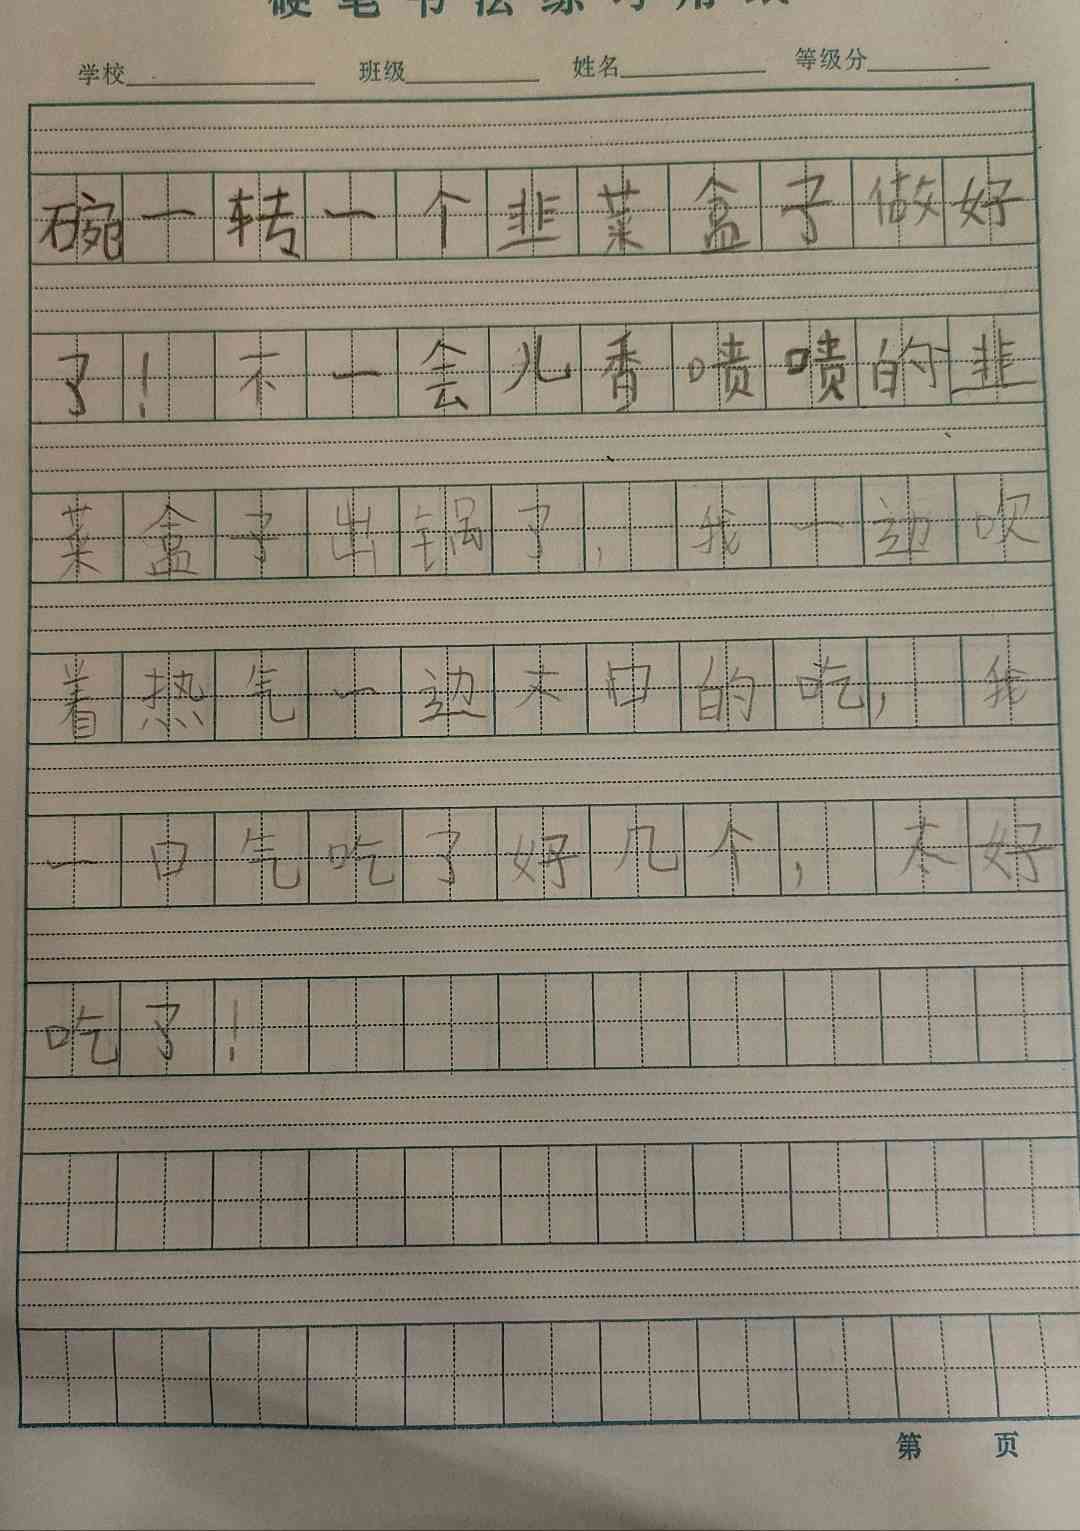 硬笔书法练习用纸
学校 班级 姓名 等级分
碗一转一个韭菜盒子做好
了！不一会儿香喷喷的韭
菜盒子出锅了，我一边吹
着热气一边大口的吃，我
一口气吃了好几个，太好
吃了！
第 页